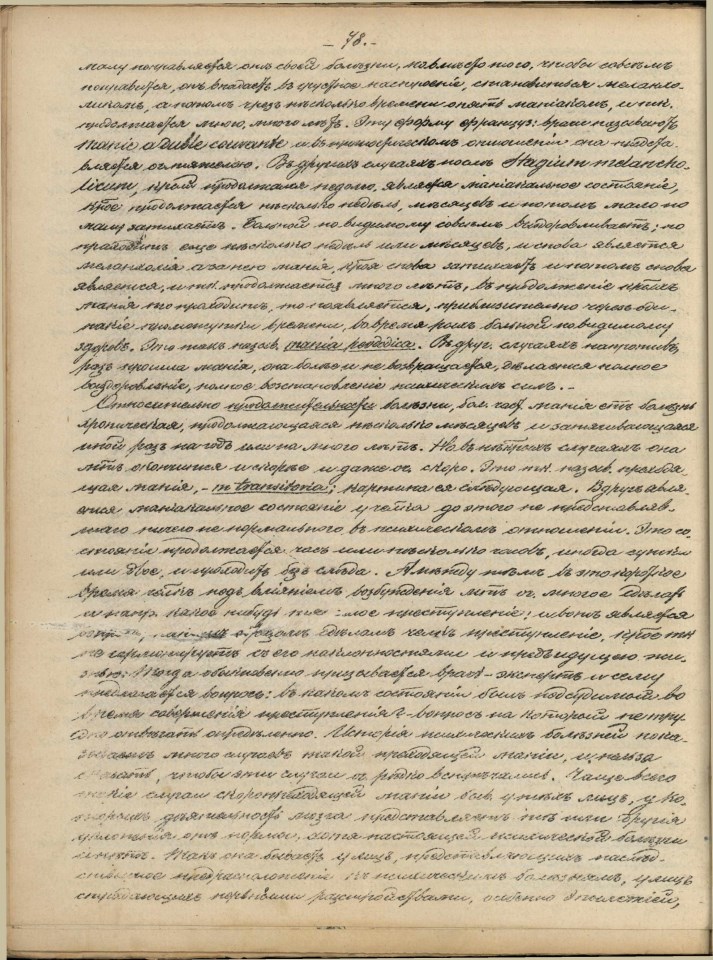 - 78. -
малу поправляется онъ своей болѣзни, но вмѣсто того, чтобы совсѣмъ
поправится, онъ впадаетъ въ грустное настроеніе, становиться меланхо-
ликомъ, а потомъ чрезъ нѣсколько времени опять маніакомъ, и т.к.
продолжается много, много лѣтъ. Эту форму француз: врачи называютъ
manie à double courante и въ прогностическомъ отношеніи она предста-
вляется оч. тяжелою. Въ другихъ случаяхъ послѣ Stadium melancho-
licum, крый продолжался недолго, является маніакальное состояніе,
крое продолжается нѣсколько недѣль, мѣсяцевъ и потомъ мало по
малу затихаетъ. Больной по видимому совсѣмъ выздоровливаетъ; но
проходитъ еще нѣсколько недѣль или мѣсяцевъ, и снова является
меланхолія а за нею манія, края снова затихаетъ и потомъ снова
является, и т.к. продолжается много лѣтъ, въ продолженіе крыхъ
манія то проходитъ, то появляется, приблизительно черезъ оди-
накіе промежутки времени, во время крыхъ больной по видимому
здоровъ. Это такъ назыв. mania periodica. Въ друг. случаяхъ напротивъ,
разъ прошла манія, она болѣе и не возвращается, дѣлается полное
выздоровленіе, полное возстановленіе психическихъ силъ. -
Относительно продолжительности болѣзни, бол. част. манія есть болѣзнь
хроническая, продолжающаяся нѣсколько мѣсяцевъ и затягивающаяся
иной разъ на годъ или на много лѣтъ. Но въ нѣкрыхъ случаяхъ она
мтъ окончится и скорѣе и даже оч. скоро. Это т.к. назыв. преходя-
щая манія, - m. transitoria; картина ея слѣдующая. Вдругъ явля-
ется маніакальное состояніе у челка до этого не представляв-
шаго ничего не нормальнаго въ психическомъ отношеніи. Это со-
стояніе продолжается часъ или нѣсколько часовъ, иногда сутки
или двое, и проходитъ безъ слѣда. А между тѣмъ въ это короткое
время челкъ подъ вліяніемъ возбужденія мтъ оч. многое сдѣлать
и напр. какое нибудь преступленіе; и вотъ является
какимъ образомъ сдѣлалъ челкъ преступленіе, крое т.к.
не гармонируетъ съ его наклонностями и предъидущею жи-
знью? Тогда обыкновенно призывается врачъ - экспертъ и ему
предлагается вопросъ: въ какомъ состояніи былъ подсудимый во
время совершенія преступленія? - вопросъ на который не тру-
дно отвѣчать опредѣленно. Исторія психическихъ болѣзней пока-
зываетъ много случаевъ такой преходящей маніи, и нельзя
сказать, чтобы эти случаи оч. рѣдко встрѣчались. Чаще всего
такіе случаи скоропреходящей маніи быв. у тѣхъ лицъ, у ко-
торыхъ дѣятельность мозга представляетъ тѣ или другія
уклоненія отъ нормы, хотя настоящей психической болѣзни
и нѣтъ. Такъ она бываетъ у лицъ, представляющихъ наслѣд-
ственное предрасположеніе къ психическимъ болѣзнямъ, у лицъ
страдающихъ нервными разстройствами, особенно эпилепсіей,